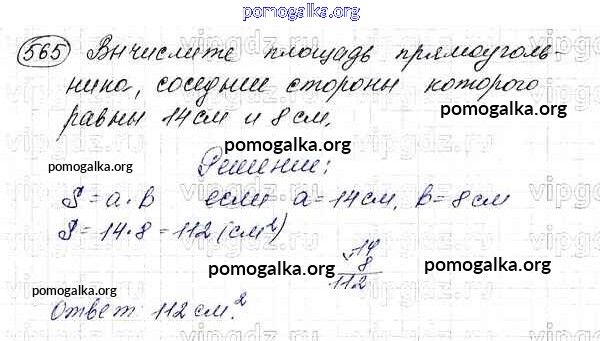 pomogalka.org
565 Вычислите площадь прямоуголь-
ника, соседние стороны которого
pomogalka.org
равны 14 см и 8 см.
pomogalka.org
pomogalka.org
Решение:
S = a · b если a = 14 см, b = 8 см
S = 14 · 8 = 112 (см²)
14
8
112
pomogalka.org
pomogalka.org
pomogalka.org
Ответ: 112 см.²